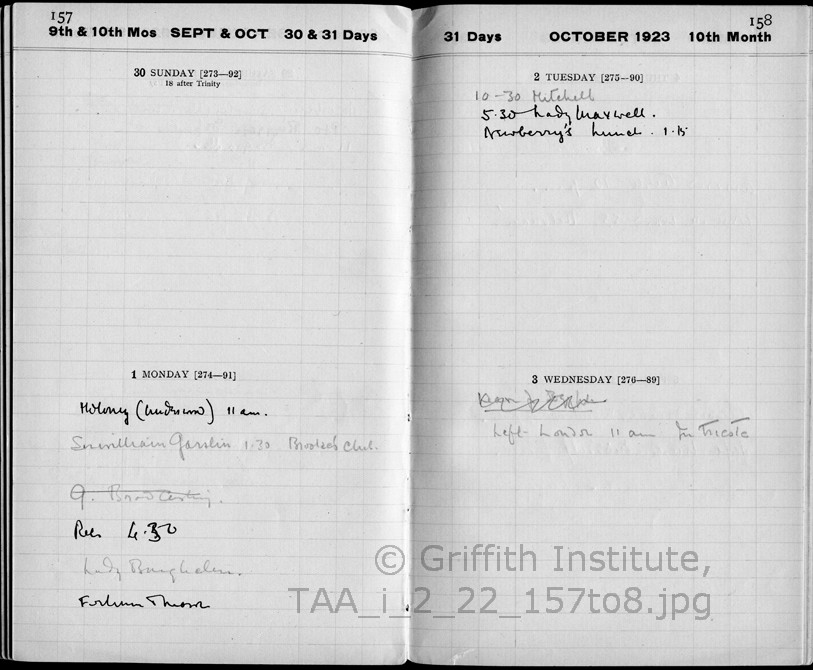 157
9th & 10th Mos SEPT & OCT 30 & 31 Days
30 SUNDAY [273—92]
18 after Trinity
1 MONDAY [274—91]
(Anderson) 11 am.
Sir William Garstin 1.30 Brooks's Club.
9. Broadcasting.
4.30
Lady
158
31 Days OCTOBER 1923 10th Month
2 TUESDAY [275—90]
10-30 Mitchell
5.30 Lady Maxwell.
Newberry's lunch. 1.15
3 WEDNESDAY [276—89]
Left London 11 am for Trieste
© Griffith Institute,
TAA_i_2_22_157to8.jpg